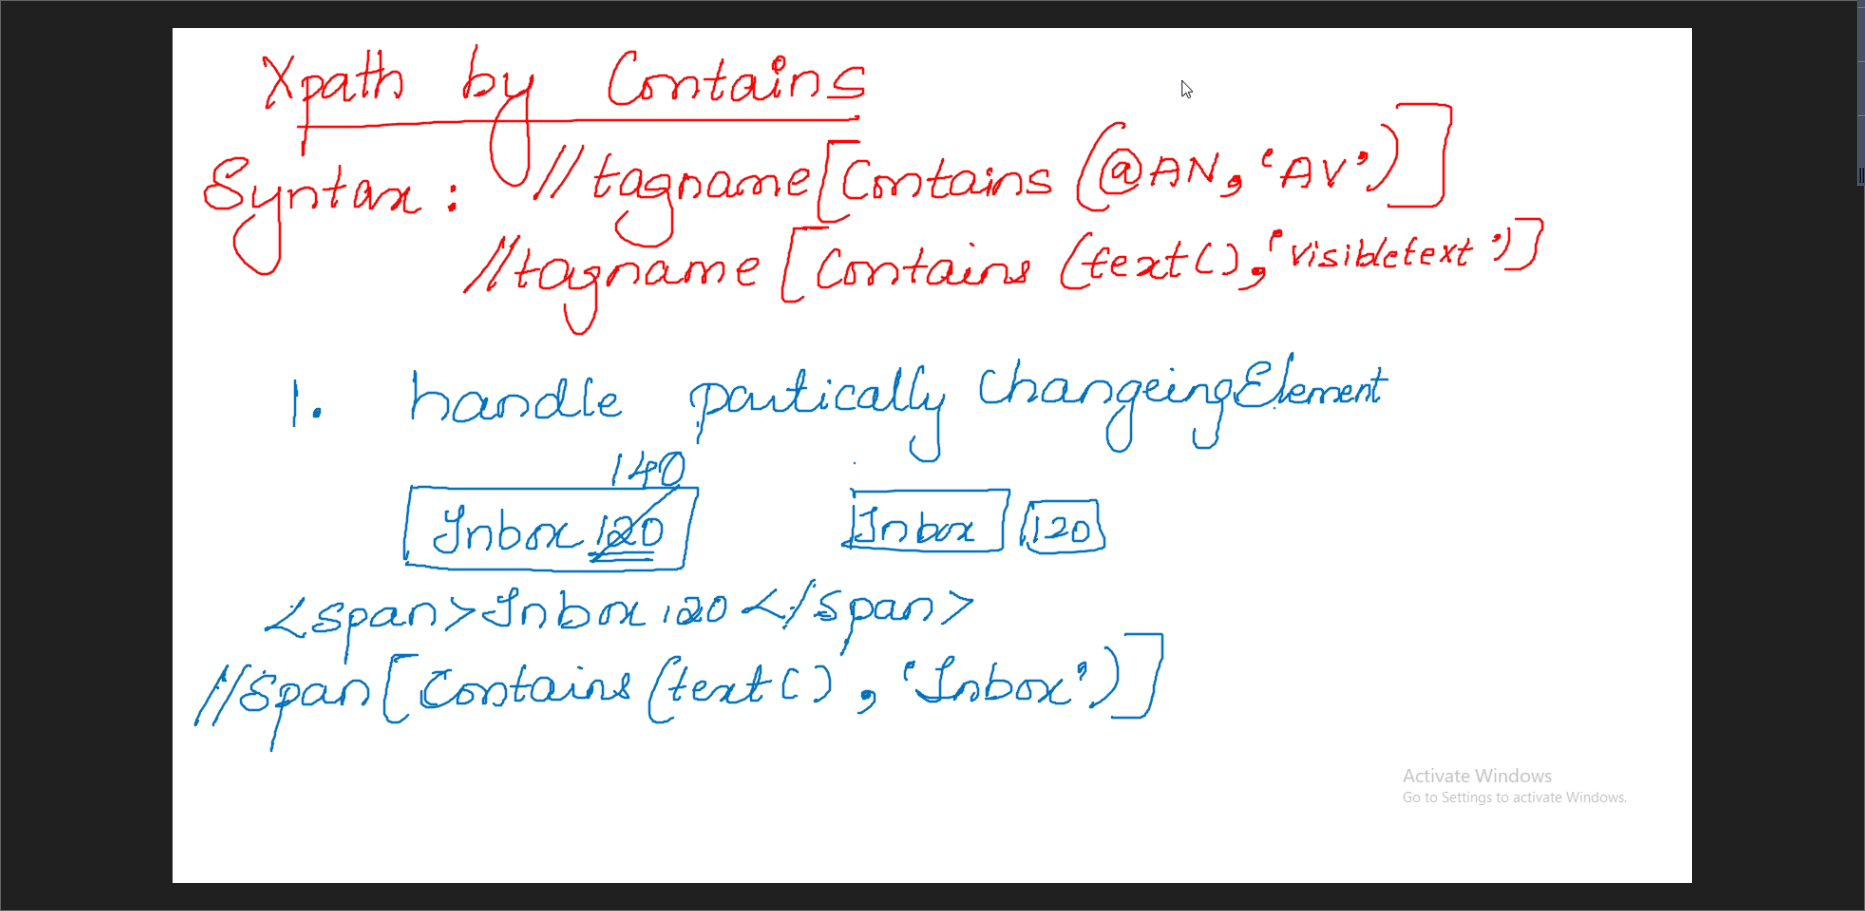 Xpath by Contains
Syntax: //tagname[Contains (@AN, 'AV')]
//tagname [Contains (text(), 'visibletext')]
1. handle partically changeingElement
140
Inbox 120 Inbox 120
<span>Inbox 120 </span>
//span[Contains (text(), 'Inbox')]
Activate Windows
Go to Settings to activate Windows.